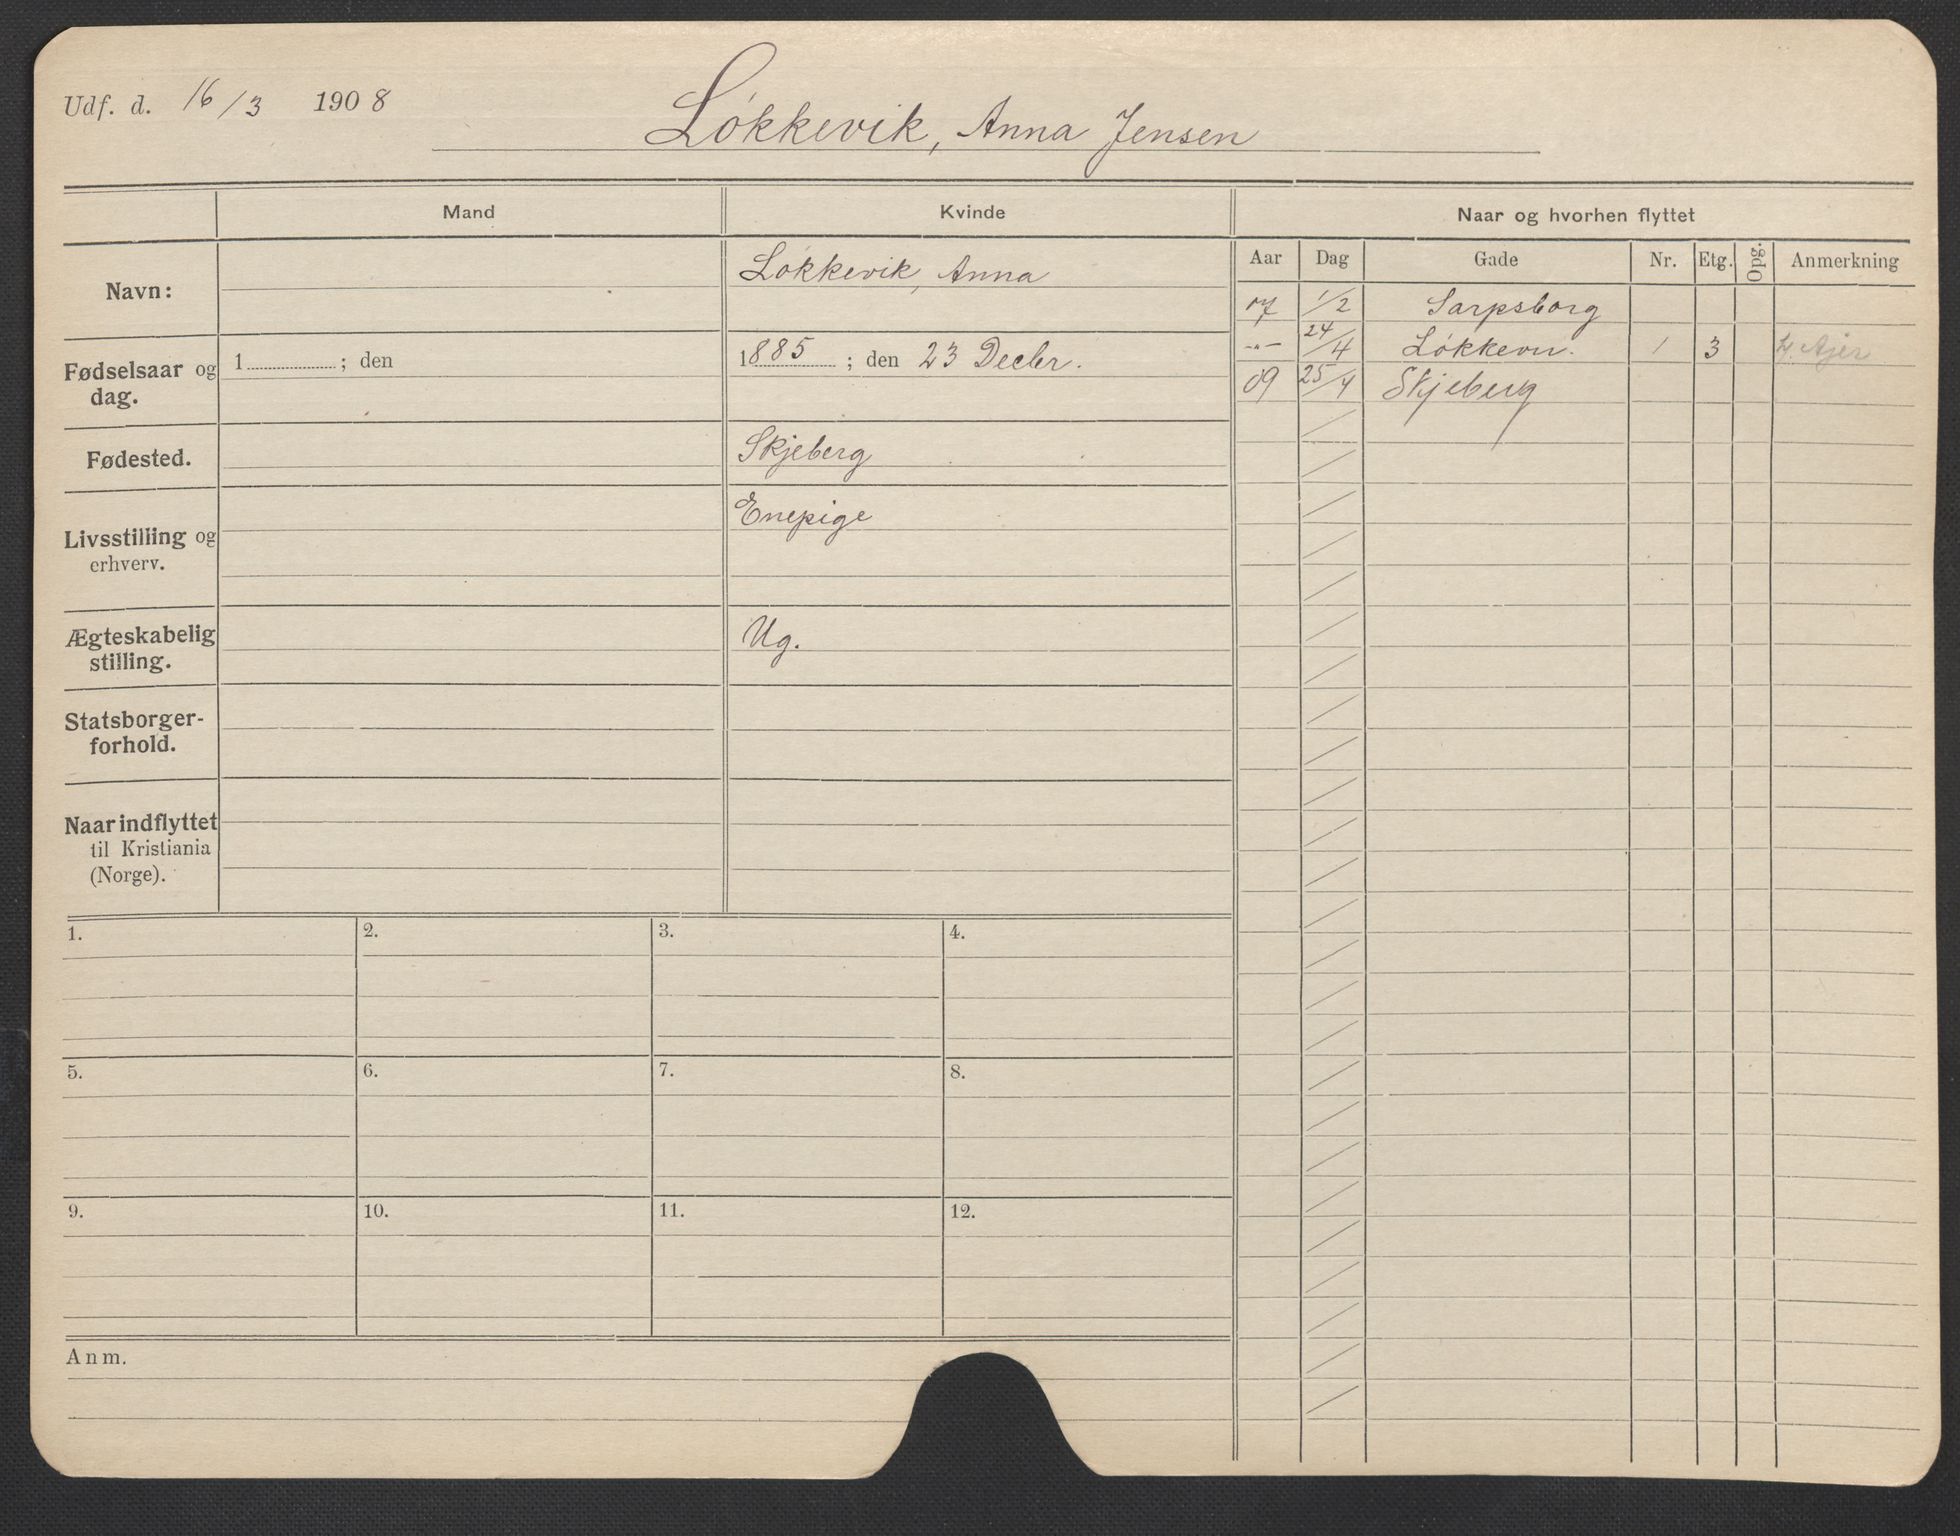 Udf. d. 16/3 1908
Løkkevik, Anna Jensen
Mand Kvinde Naar og hvorhen flyttet
Aar Dag Gade Nr. Etg. Opg. Anmerkning
Navn: Løkkevik, Anna
07 1/2 Sarpsborg
-"- 24/4 Løkkevn. 1 3
09 25/4 Skjeberg
Fødselsaar og 1 ; den 1885 ; den 23 Decbr.
dag.
Fødested. Skjeberg
Livsstilling og Enepige
erhverv.
Ægteskabelig Ug.
stilling.
Statsborger-
forhold.
Naar indflyttet
til Kristiania
(Norge).
1. 2. 3. 4.
5. 6. 7. 8.
9. 10. 11. 12.
Anm.